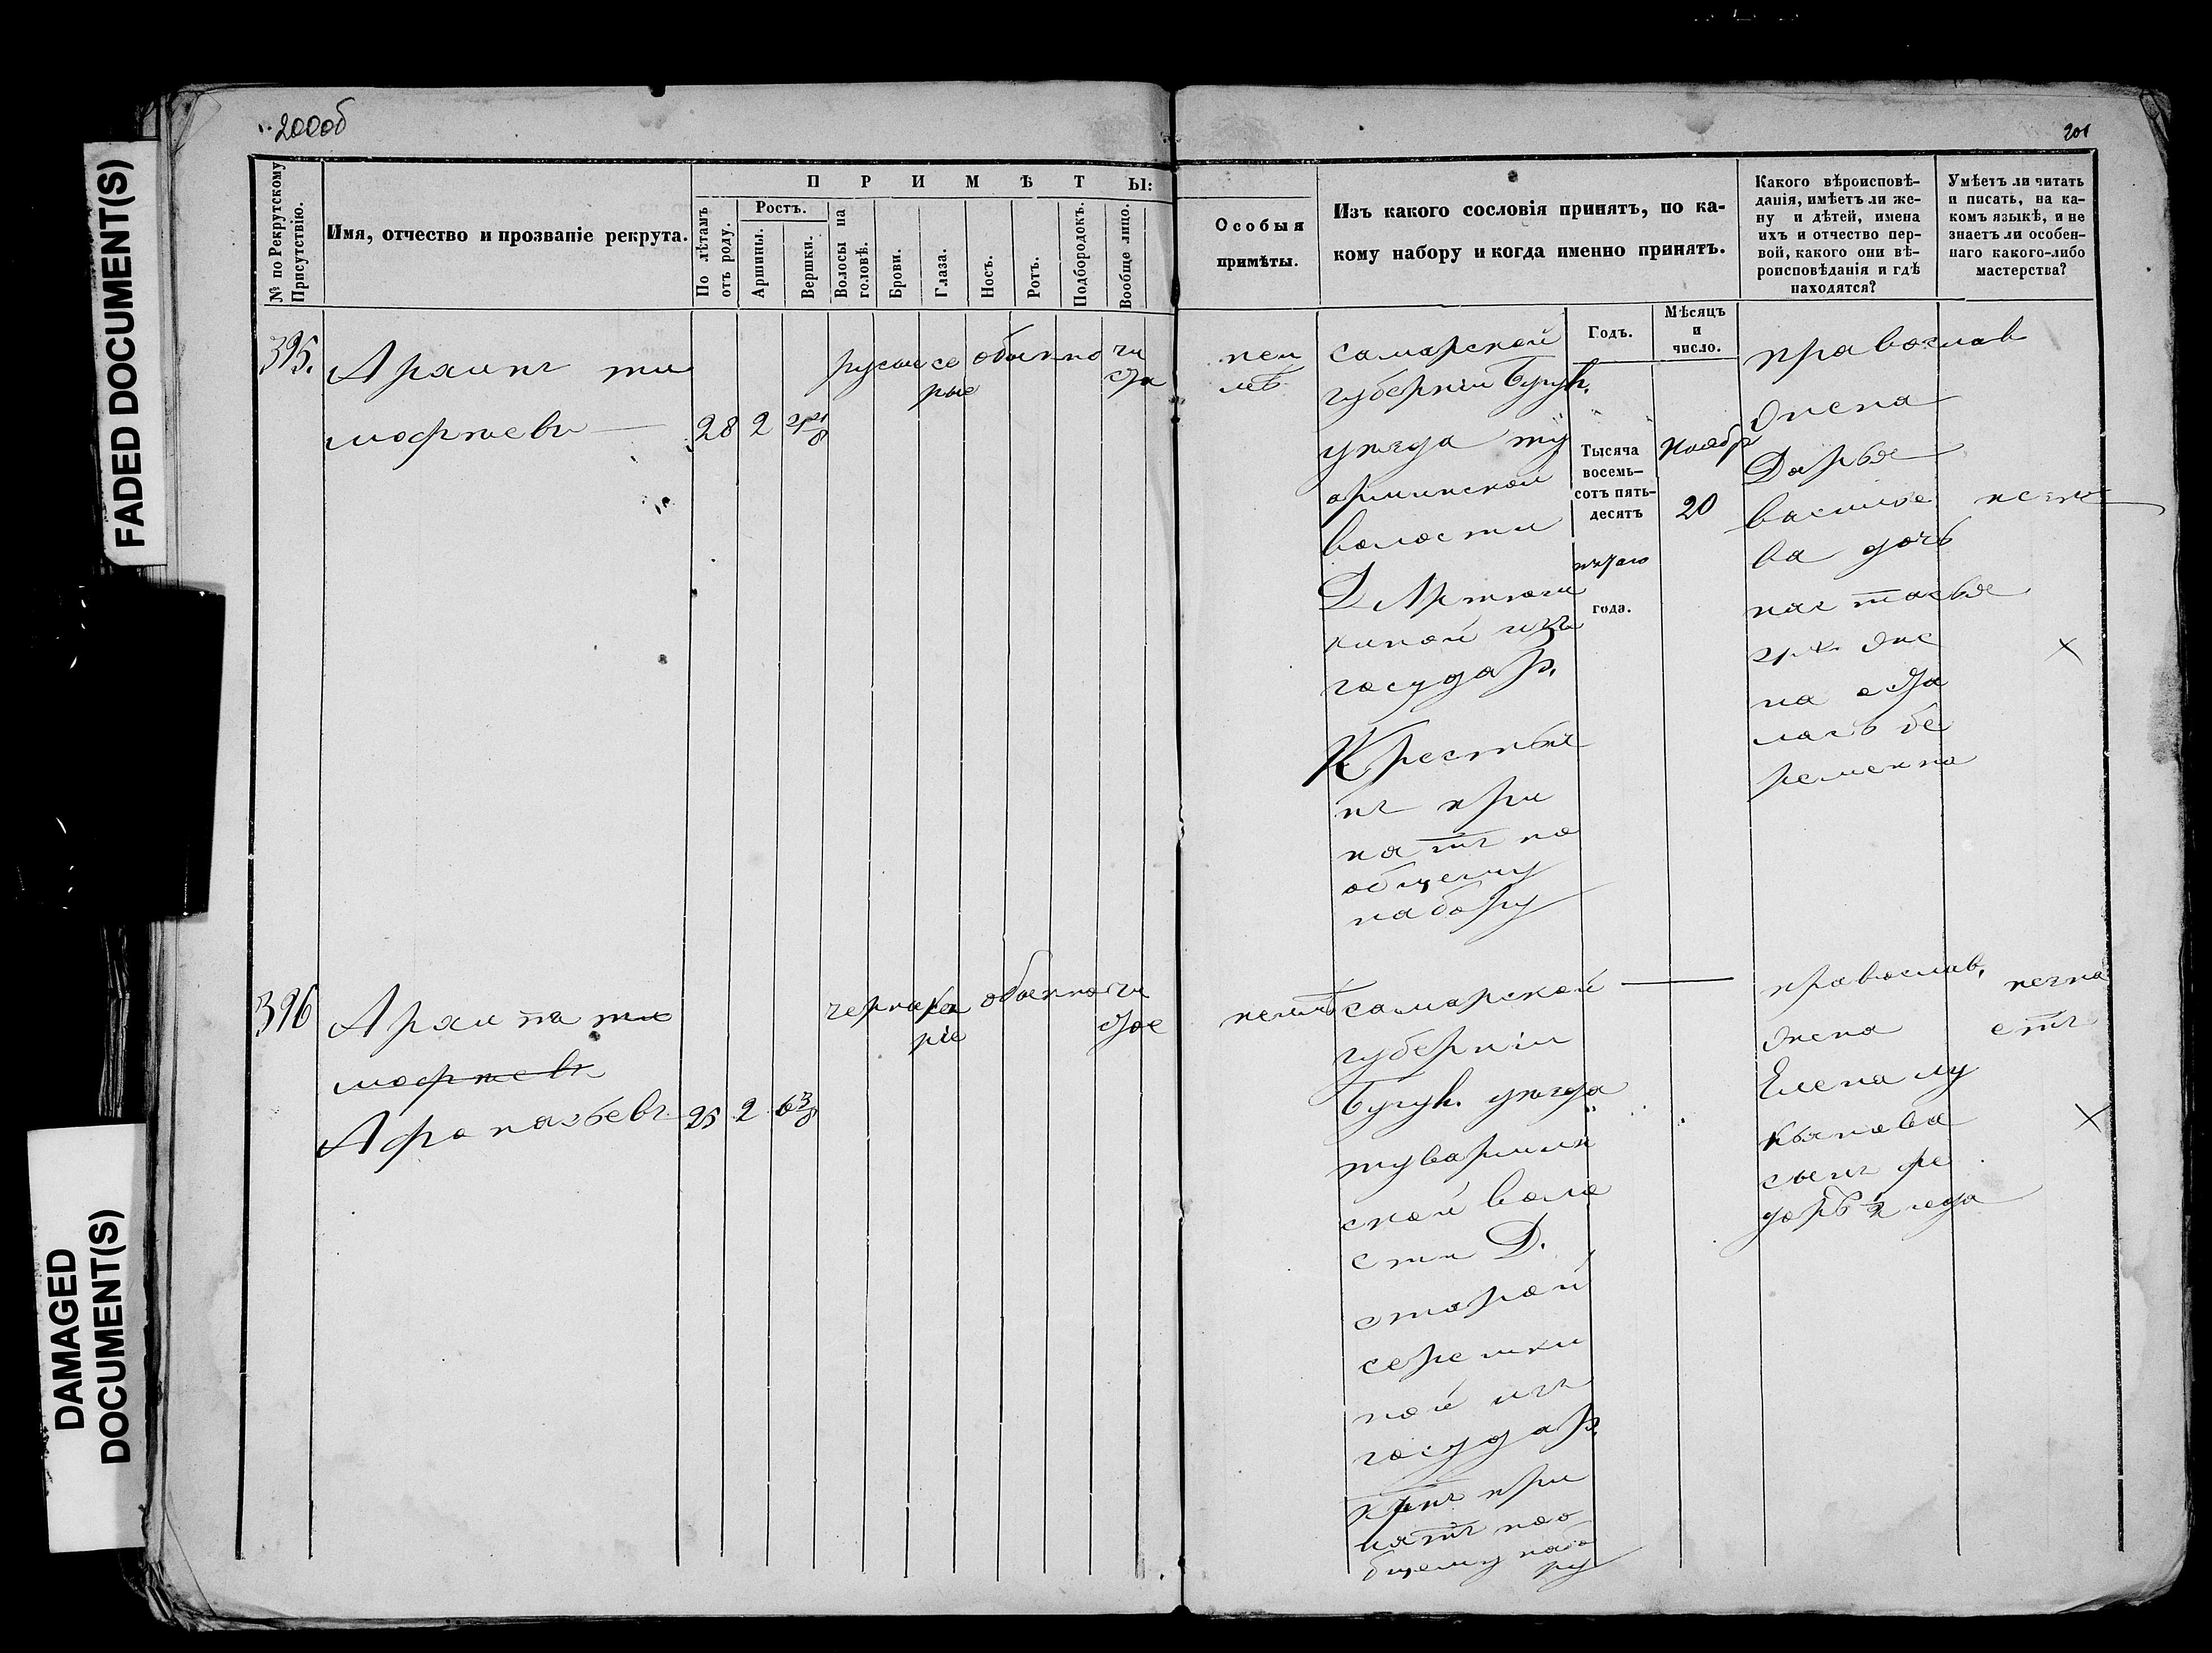 FADED DOCUMENT(S)
DAMAGED
DOCUMENT(S)
200об
201
№ по Рекрутскому
Присутствію.
Имя, отчество и прозваніе рекрута.
ПРИМѢТЫ:
По лѣтамъ
отъ роду.
Ростъ.
Аршины.
Вершки.
Волосы на
головѣ.
Брови.
Глаза.
Носъ.
Ротъ.
Подбородокъ.
Вообще лицо.
Особыя
примѣты.
Изъ какого сословія принятъ, по ка-
кому набору и когда именно принятъ.
Годъ.
Мѣсяцъ
и
число.
Какого вѣроисповѣ-
данія, имѣетъ ли же-
ну и дѣтей, имена
ихъ и отчество пер-
вой, какого они вѣ-
роисповѣданія и гдѣ
находятся?
Умѣетъ ли читать
и писать, на ка-
комъ языкѣ, и не
знаетъ ли особен-
наго какого-либо
мастерства?
395.
Архипъ ти
мофтеевъ
28 2
русые се
рые
обыкно
чи
стоя
неи
меѣ
самарской
губерніи Бугул.
уѣзда ту
арминской
волости
Д Артюш
киной изъ
государ.
Крестья
нъ при
нятъ по
общему
набору
Тысяча
восемь-
сотъ пять-
десятъ
года.
Ноябр
20
православ
жена
Дарья
василье
ва дочь
настасья
же
на оста
лась бе
ременна
х
396
Архипъ ти
мофтеевъ
Афонасьевъ
25 2 6 3/8
черны ка
ріе
обыкно
чи
стое
неимѣ
самарской
губерніи
Бугул. уѣзда
тувармин
ской воло
сти Д.
старой
серешки
ной изъ
государ.
при
нятъ по о
бщему набо
ру
православ.
жена
Елена лу
кьянова
сынъ фе
доръ 1/2 года
х